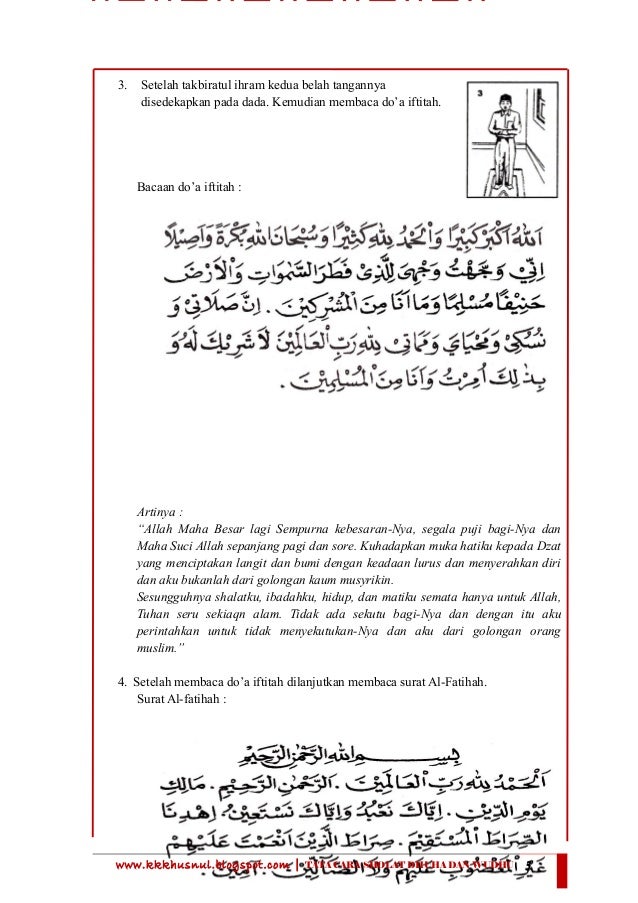 3. Setelah takbiratul ihram kedua belah tangannya
disedekapkan pada dada. Kemudian membaca do’a iftitah.
3
Bacaan do’a iftitah :
اَللّٰهُ اَكْبَرُ كَبِيْرًا وَالْحَمْدُ لِلّٰهِ كَثِيْرًا وَسُبْحَانَ اللهِ بُكْرَةً وَاَصِيْلًا
اِنِّيْ وَجَّهْتُ وَجْهِيَ لِلَّذِيْ فَطَرَ السَّمٰوَاتِ وَالْاَرْضَ
حَنِيْفًا مُسْلِمًا وَمَا اَنَا مِنَ الْمُشْرِكِيْنَ . اِنَّ صَلَاتِيْ وَ
نُسُكِيْ وَمَحْيَايَ وَمَمَاتِيْ لِلّٰهِ رَبِّ الْعَالَمِيْنَ لَا شَرِيْكَ لَهُ وَ
بِذٰلِكَ اُمِرْتُ وَاَنَا مِنَ الْمُسْلِمِيْنَ .
Artinya :
“Allah Maha Besar lagi Sempurna kebesaran-Nya, segala puji bagi-Nya dan
Maha Suci Allah sepanjang pagi dan sore. Kuhadapkan muka hatiku kepada Dzat
yang menciptakan langit dan bumi dengan keadaan lurus dan menyerahkan diri
dan aku bukanlah dari golongan kaum musyrikin.
Sesungguhnya shalatku, ibadahku, hidup, dan matiku semata hanya untuk Allah,
Tuhan seru sekiaqn alam. Tidak ada sekutu bagi-Nya dan dengan itu aku
perintahkan untuk tidak menyekutukan-Nya dan aku dari golongan orang
muslim.”
4. Setelah membaca do’a iftitah dilanjutkan membaca surat Al-Fatihah.
Surat Al-fatihah :
بِسْمِ اللهِ الرَّحْمٰنِ الرَّحِيْمِ
اَلْحَمْدُ لِلّٰهِ رَبِّ الْعَالَمِيْنَ . اَلرَّحْمٰنِ الرَّحِيْمِ . مَالِكِ
يَوْمِ الدِّيْنِ . اِيَّاكَ نَعْبُدُ وَاِيَّاكَ نَسْتَعِيْنُ . اِهْدِنَا
الصِّرَاطَ الْمُسْتَقِيْمَ . صِرَاطَ الَّذِيْنَ اَنْعَمْتَ عَلَيْهِمْ
غَيْرِ الْمَغْضُوْبِ عَلَيْهِمْ وَلَا الضَّالِّيْنَ . اٰمِيْنَ .
www.kkkhusnul.blogspot.com |